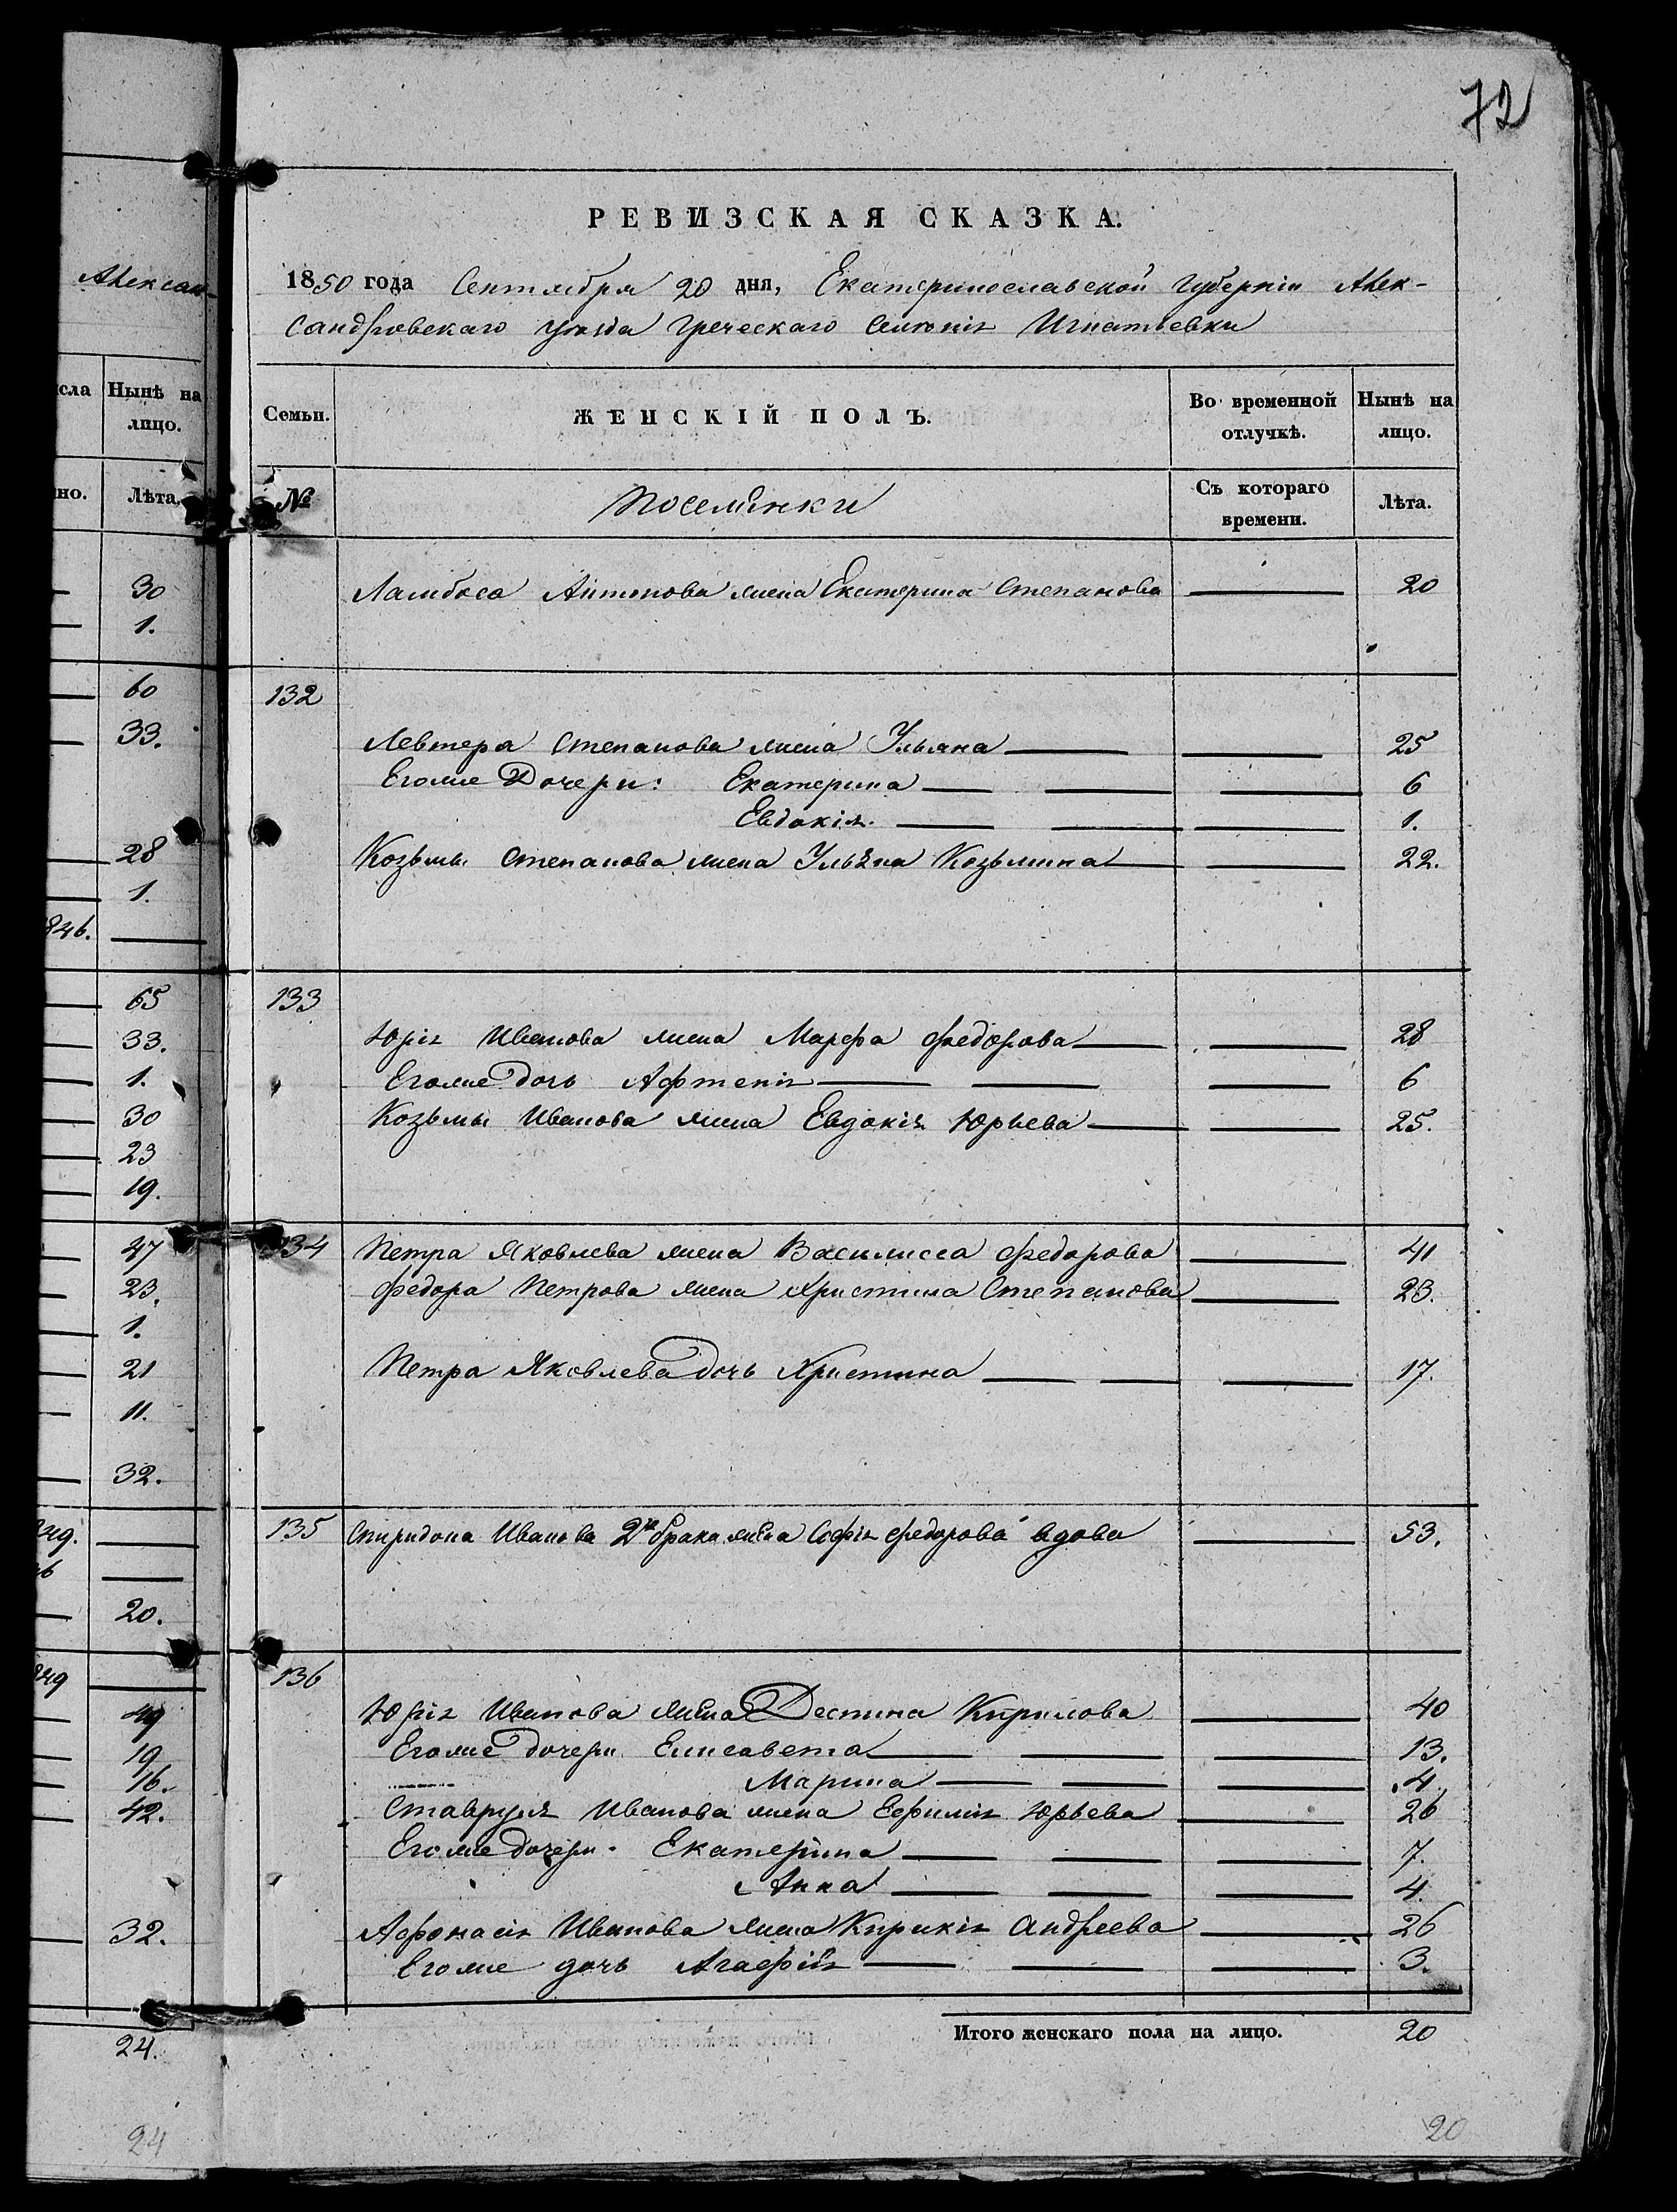 72
РЕВИЗСКАЯ СКАЗКА.
1850 года Сентября 20 дня, Екатеринославской Губерніи Алек-
сандровскаго уезда Греческаго Селенія Игнатьевки
Семьи. ЖЕНСКІЙ ПОЛЪ. Во временной отлучкѣ. Нынѣ на лицо.
№ Поселянки Съ котораго времени. Лѣта.
Ламбоса Антонова жена Екатерина Степанова 20
132
Левтера Степанова жена Ульяна 25
Егоже Дочери: Екатерина 6
Евдокія 1.
Козьмы Степанова жена Ульяна Козьмина 22.
133
Юрія Иванова жена Марфа Федорова 28
Егоже дочь Афтенія 6
Козьмы Иванова жена Евдокія Юрьева 25.
134 Петра Яковлева жена Василисса Федорова 41
Федора Петрова жена Христина Степанова 23.
Петра Яковлева дочь Христина 17.
135 Спиридона Иванова 2го брака жена Софія Федорова вдова 53.
136
Юрія Иванова жена Деспина Кирилова 40
Егоже дочери Елисавета 13.
Марина 4.
Ставруля Иванова жена Ефимія Юрьева 26
Егоже дочери. Екатерина 7.
Анна 4.
Афонасія Иванова жена Кирикія Андреева 26
Егоже дочь Агафія 3.
Итого женскаго пола на лицо. 20
20
Алексан-
сла Нынѣ на лицо.
но. Лѣта.
30
1.
60
33.
28
1.
846.
65
33.
1.
30
23
19.
47
23.
1.
21
11.
32.
20.
49
19
16.
42.
32.
24.
24